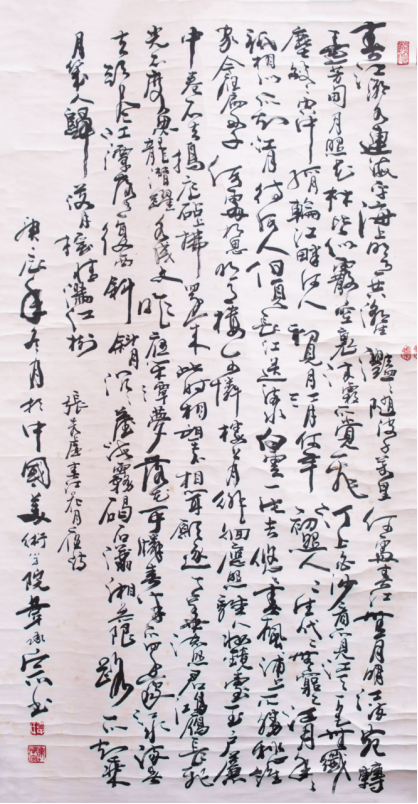 春江潮水連海平海上明月共潮生灧灧隨波千萬里何處春江無月明江流宛轉
遶芳甸月照花林皆似霰空裏流霜不覺飛汀上白沙看不見江天一色無纖
塵皎皎空中孤輪江畔何人初見月江月何年初照人人生代代無窮已江月年年
祇相似不知江月待何人但見長江送流水白雲一片去悠悠青楓浦上不勝愁誰
家今夜扁舟子何處相思明月樓可憐樓上月徘徊應照離人妝鏡臺玉戶簾
中卷不去搗衣砧上拂還來此時相望不相聞願逐月華流照君鴻雁長飛
光不度魚龍潛躍水成文昨夜閒潭夢落花可憐春半不還家江水流春
去欲盡江潭落月復西斜斜月沉沉藏海霧碣石瀟湘無限路不知乘
月幾人歸落月搖情滿江樹
張若虛春江花月夜詩
庚辰年冬月於中國美術學院書